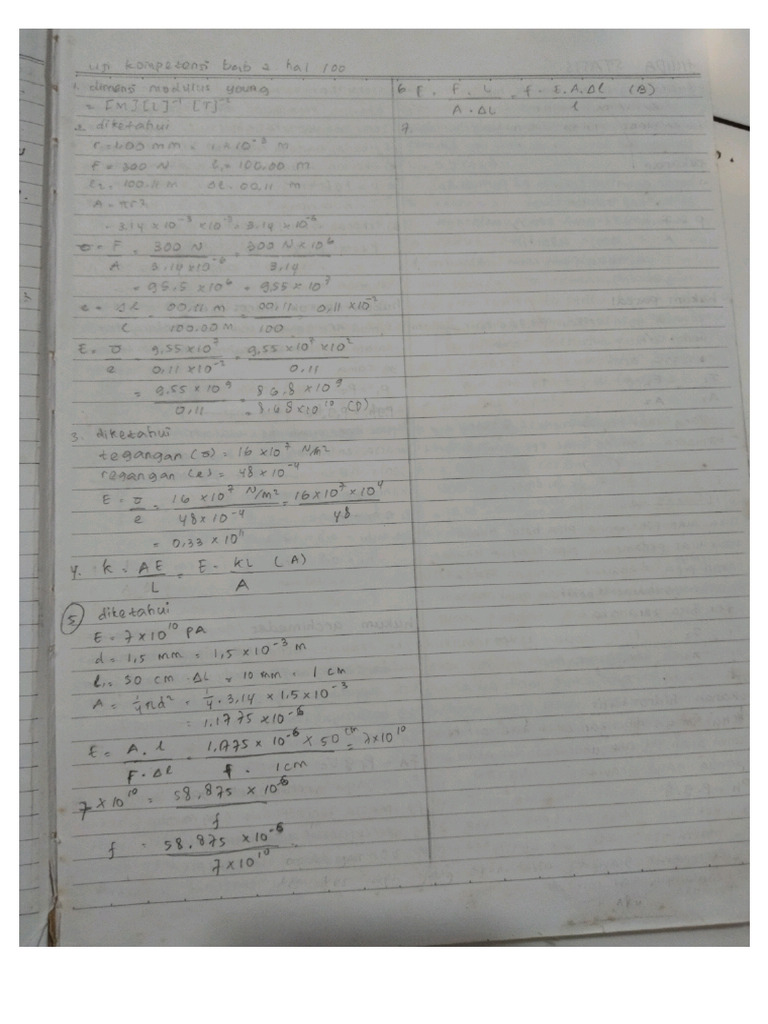 uji kompetensi bab 2 hal 100
1. dimensi modulus young
= [M][L]⁻¹ [T]⁻²
2. diketahui
F = 300 N l₁ = 100,00 m
l₂ = 100,11 m Δl = 00,11 m
A = πr²
= 3,14 × 10⁻³ × 10⁻³ = 3,14 × 10⁻⁶
σ = F/A = 300 N / 3,14 × 10⁻⁶ = 300 N × 10⁶ / 3,14
= 95,5 × 10⁶ = 9,55 × 10⁷
e = Δl / l = 00,11 m / 100,00 m = 00,11 / 100 = 0,11 × 10⁻²
E = σ / e = 9,55 × 10⁷ / 0,11 × 10⁻² = 9,55 × 10⁷ × 10² / 0,11
= 9,55 × 10⁹ / 0,11 = 86,8 × 10⁹
= 8,68 × 10¹⁰ (D)
3. diketahui
tegangan (σ) = 16 × 10⁷ N/m²
regangan (e) = 48 × 10⁻⁴
E = σ / e = 16 × 10⁷ N/m² / 48 × 10⁻⁴ = 16 × 10⁷ × 10⁴ / 48
= 0,33 × 10¹¹
4. k = AE / L = E = kL / A (A)
5. diketahui
E = 7 × 10¹⁰ PA
d = 1,5 mm = 1,5 × 10⁻³ m
l = 50 cm ΔL = 10 mm = 1 cm
A = ¼πd² = ¼ . 3,14 × 1,5 × 10⁻³
= 1,1775 × 10⁻⁶
E = A . l / F . Δl = 1,1775 × 10⁻⁶ × 50 cm / f . 1 cm = 7 × 10¹⁰
7 × 10¹⁰ = 58,875 × 10⁻⁶ / f
f = 58,875 × 10⁻⁶ / 7 × 10¹⁰ =
6. E = F . L / A . ΔL = f = E.A.Δl / l (B)
7.